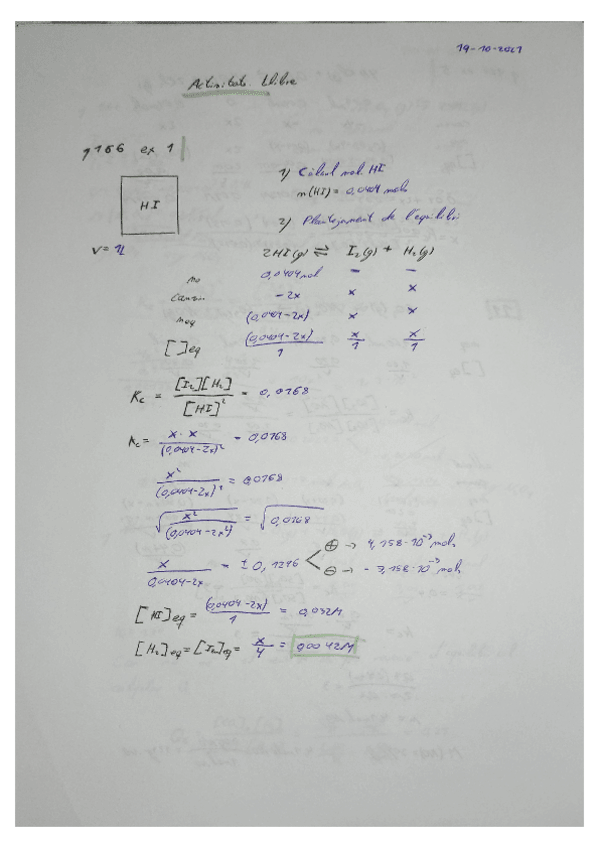 19-10-2021
Activitats llibre
p 166 ex 1
HI
V = 1L
1) Càlcul mols HI
n(HI) = 0,0404 mols
2) Plantejament de l'equilibri
2HI(g) ⇌ I₂(g) + H₂(g)
no 0,0404 mol - -
Canvi -2x x x
neq (0,0404-2x) x x
[ ]eq (0,0404-2x)/1 x/1 x/1
Kc = [I₂][H₂]/[HI]² = 0,0168
Kc = x·x/(0,0404-2x)² = 0,0168
x²/(0,0404-2x)² = 0,0168
√(x²/(0,0404-2x²)) = √0,0168
x/0,0404-2x = ±0,1296 < ⊕ → 4,158·10⁻³ mols
⊖ → -7,158·10⁻³ mols
[HI]eq = (0,0404-2x)/1 = 0,032M
[H₂]eq = [I₂]eq = x/1 = 0,0042M